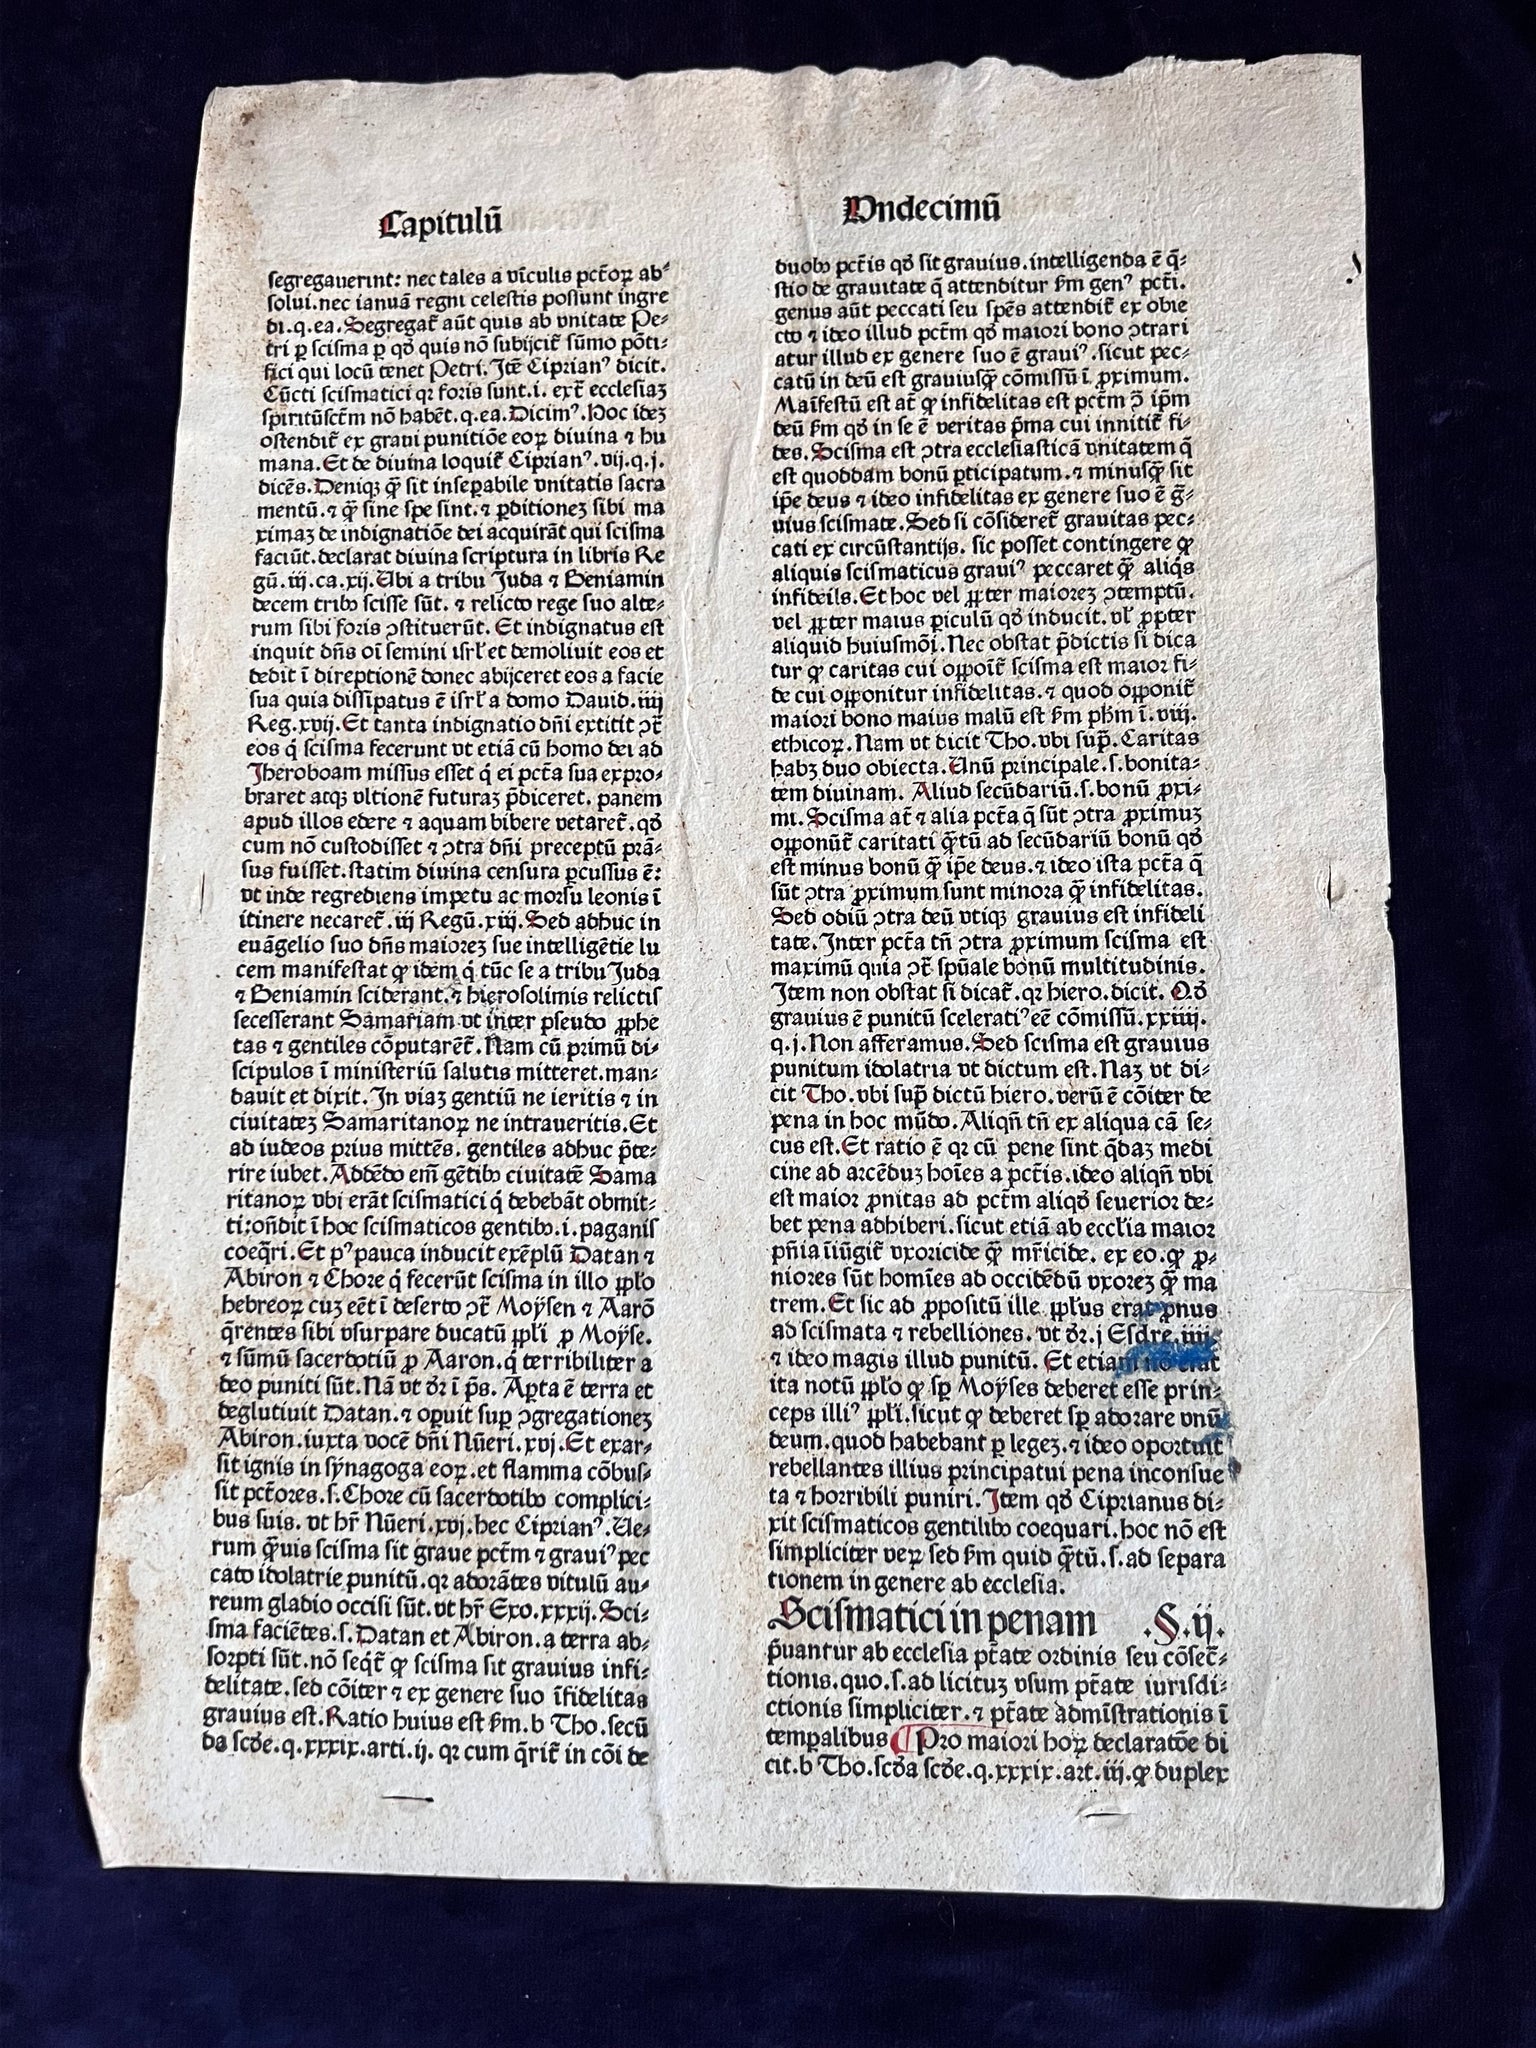 Capitulū
segregauerint: nec tales a vīculis pctoꝝ ab⸗
solui. nec ianuā regni celestis possunt ingre
di. q. ea. Segregat̄ aūt quis ab vnitate Pe⸗
tri ꝑ scisma ꝑ qđ quis nō subijcit̄ sūmo pōti⸗
fici qui locū tenet Petri. Itē Ciprianꝰ dicit.
Cūcti scismatici qꝛ foris sunt .i. ext̄ ecclesiaꝫ
spiritūsctm̄ nō habēt. q. ea. Dicimꝰ. Hoc ideꝫ
ostendit̄ ex graui punitiōe eoꝝ diuina ⁊ hu
mana. Et de diuina loquit̄ Ciprianꝰ. vij. q. j.
dicēs. Deniqꝫ ꝙ̄ sit insep̱abile vnitatis sacra
mentū. ⁊ ꝙ̄ sine spe sint. ⁊ ꝑditioneꝫ sibi ma
ximaꝫ de indignatiōe dei acquirāt qui scisma
faciūt. declarat diuina scriptura in libris Re
gū. iij. ca. xij. Ubi a tribu Juda ⁊ Beniamin
decem tribꝰ scisse sūt. ⁊ relicto rege suo alte⸗
rum sibi foris ꝯstituerūt. Et indignatus est
inquit dn̄s oī semini isrł et demoliuit eos et
dedit ī direptionē donec abijceret eos a facie
sua quia dissipatus ē isrł a domo Dauid. iiij
Reg. xvij. Et tanta indignatio dn̄i extitit ꝯt̄
eos q́ scisma fecerunt vt etiā cū homo dei ad
Jheroboam missus esset q́ ei pctā sua expro⸗
braret atqꝫ vltionē futuraꝫ p̄diceret. panem
apud illos edere ⁊ aquam bibere vetaret̄. qđ
cum nō custodisset ⁊ ꝯtra dn̄i preceptū prā⸗
sus fuisset. statim diuina censura ꝑcussus ē:
vt inde regrediens impetu ac morsu leonis ī
itinere necaret̄. iij Regū. xiij. Sed adhuc in
euāgelio suo dn̄s maioreꝫ sue intelligētie lu
cem manifestat ꝙ idem q́ tūc se a tribu Juda
⁊ Beniamin sciderant. ⁊ hierosolimis relictis
secesserant Samariam vt inter pseudo ꝓphe
tas ⁊ gentiles cōputarēt̄. Nam cū primū di⸗
scipulos ī ministeriū salutis mitteret. man⸗
dauit et dixit. In viaꝫ gentiū ne ieritis ⁊ in
ciuitateꝫ Samaritanoꝝ ne intraueritis. Et
ad iudeos prius mittēs. gentiles adhuc p̄te⸗
rire iubet. Addēdo em̄ gētibꝰ ciuitatē Sama
ritanoꝝ vbi erāt scismatici q́ debebāt obmit⸗
ti: ōn̄dit ī hoc scismaticos gentibꝰ .i. paganis
coeq̄ri. Et pꝰ pauca inducit exēplū Datan ⁊
Abiron ⁊ Chore q́ fecerūt scisma in illo ꝓpło
hebreoꝝ cuꝫ eēt ī deserto ꝯt̄ Moysen ⁊ Aarō
q̄rentes sibi vsurpare ducatū ꝓpłi ꝓ Moyse.
⁊ sūmū sacerdotiū ꝓ Aaron. q́ terribiliter a
deo puniti sūt. Nā vt dꝛ ī p̄s. Apta ē terra et
deglutiuit Datan. ⁊ oꝑuit suꝑ ꝯgregationeꝫ
Abiron. iuxta vocē dn̄i Nūeri. xvj. Et exar⸗
sit ignis in synagoga eoꝝ. et flamma cōbus⸗
sit pctōres .s. Chore cū sacerdotibꝰ complici⸗
bus suis. vt hr̄ Nūeri. xvj. hec Ciprianꝰ. Ue⸗
rum ꝙ̄uis scisma sit graue pctm̄ ⁊ grauiꝰ pec
cato idolatrie punitū. qꝛ adorātes vitulū au⸗
reum gladio occisi sūt. vt hr̄ Exo. xxxij. Sci⸗
sma faciētes .s. Datan et Abiron. a terra ab⸗
sorpti sūt. nō seqt̄ ꝙ scisma sit grauius infi⸗
delitate. sed cōiter ⁊ ex genere suo īfidelitas
grauius est. Ratio huius est fm̄. b Tho. secū
da scđe. q. xxxix. arti. ij. qꝛ cum q̄rit̄ in cōi de
Vndecimū
duobꝰ pctīs qđ sit grauius. intelligenda ē q̄⸗
stio de grauitate q̄ attenditur fm̄ genꝰ pctī.
genus aūt peccati seu spēs attendit̄ ex obie
cto ⁊ ideo illud pctm̄ qđ maiori bono ꝯtrari
atur illud ex genere suo ē grauiꝰ. sicut pec⸗
catū in deū est grauiusꝙ̄ cōmissū ī ꝓximum.
Maīfestū est at̄ ꝙ infidelitas est pctm̄ ꝯ ip̄m
deū fm̄ qđ in se ē veritas p̄ma cui innitit̄ fi⸗
des. Scisma est ꝯtra ecclesiasticā vnitatem q̄
est quoddam bonū ꝑticipatum. ⁊ minusꝙ̄ sit
ip̄e deus ⁊ ideo infidelitas ex genere suo ē g̃⸗
uius scismate. Sed si cōsideret̄ grauitas pec⸗
cati ex circūstantijs. sic posset contingere ꝙ
aliquis scismaticus grauiꝰ peccaret ꝙ̄ aliq́s
infideils. Et hoc vel ꝓpter maioreꝫ ꝯtemptū.
vel ꝓpter maius ꝑiculū qđ inducit. vł ꝓpter
aliquid huiusmōi. Nec obstat p̄dictis si dica
tur ꝙ caritas cui oppōit̄ scisma est maior fi⸗
de cui opponitur infidelitas. ⁊ quod opponit̄
maiori bono maius malū est fm̄ ph̄m ī. viij.
ethicoꝝ. Nam vt dicit Tho. vbi sup̄. Caritas
habꝫ duo obiecta. Unū principale .s. bonita⸗
tem diuinam. Aliud secūdariū .s. bonū ꝓxi⸗
mi. Scisma at̄ ⁊ alia pctā q̄ sūt ꝯtra ꝓximuꝫ
opponūt̄ caritati q̄tū ad secūdariū bonū qđ
est minus bonū ꝙ̄ ip̄e deus. ⁊ ideo ista pctā q̄
sūt ꝯtra ꝓximum sunt minora ꝙ̄ infidelitas.
Sed odiū ꝯtra deū vtiqꝫ grauius est infideli
tate. Inter pctā tn̄ ꝯtra ꝓximum scisma est
maximū quia ꝯt̄ spūale bonū multitudinis.
Item non obstat si dicat̄. qꝛ hiero. dicit. Qđ
grauius ē punitū sceleratiꝰ eē cōmissū. xxiiij.
q. j. Non afferamus. Sed scisma est grauius
punitum idolatria vt dictum est. Naꝫ vt di⸗
cit Tho. vbi sup̄ dictū hiero. verū ē cōiter de
pena in hoc mūdo. Aliqn̄ tn̄ ex aliqua cā se⸗
cus est. Et ratio ē qꝛ cū pene sint q̄daꝫ medi
cine ad arcēduꝫ hoīes a pctīs. ideo aliqn̄ vbi
est maior ꝓnitas ad pctm̄ aliqđ seuerior de⸗
bet pena adhiberi. sicut etiā ab eccl̄ia maior
pn̄ia īiūgit̄ vxoricide ꝙ̄ mr̄icide. ex eo. ꝙ ꝓ⸗
niores sūt homīes ad occidēdū vxoreꝫ ꝙ̄ ma
trem. Et sic ad ꝓpositū ille ꝓpłus erat ꝓnus
ad scismata ⁊ rebelliones. vt dꝛ. j Esdre. iiij
⁊ ideo magis illud punitū. Et etiam nō erat
ita notū ꝓpło ꝙ sꝑ Moyses deberet esse prin⸗
ceps illiꝰ ꝓpłi. sicut ꝙ deberet sꝑ adorare vnū
deum. quod habebant ꝑ legeꝫ. ⁊ ideo oportuit
rebellantes illius principatui pena inconsue
ta ⁊ horribili puniri. Item qđ Ciprianus di⸗
xit scismaticos gentilibꝰ coequari. hoc nō est
simpliciter veꝝ sed fm̄ quid q̄tū .s. ad separa
tionem in genere ab ecclesia.
Scismatici in penam .§. ij.
p̄uantur ab ecclesia ptāte ordinis seu cōsect̄⸗
tionis. quo .s. ad licituꝫ vsum ptāte iurisdi⸗
ctionis simpliciter. ⁊ ptāte adm̄istrationis ī
temꝑalibus ¶ Pro maiori hoꝝ declaratōe di
cit. b Tho. scđa scđe. q. xxxix. art. iij. ꝙ duplex